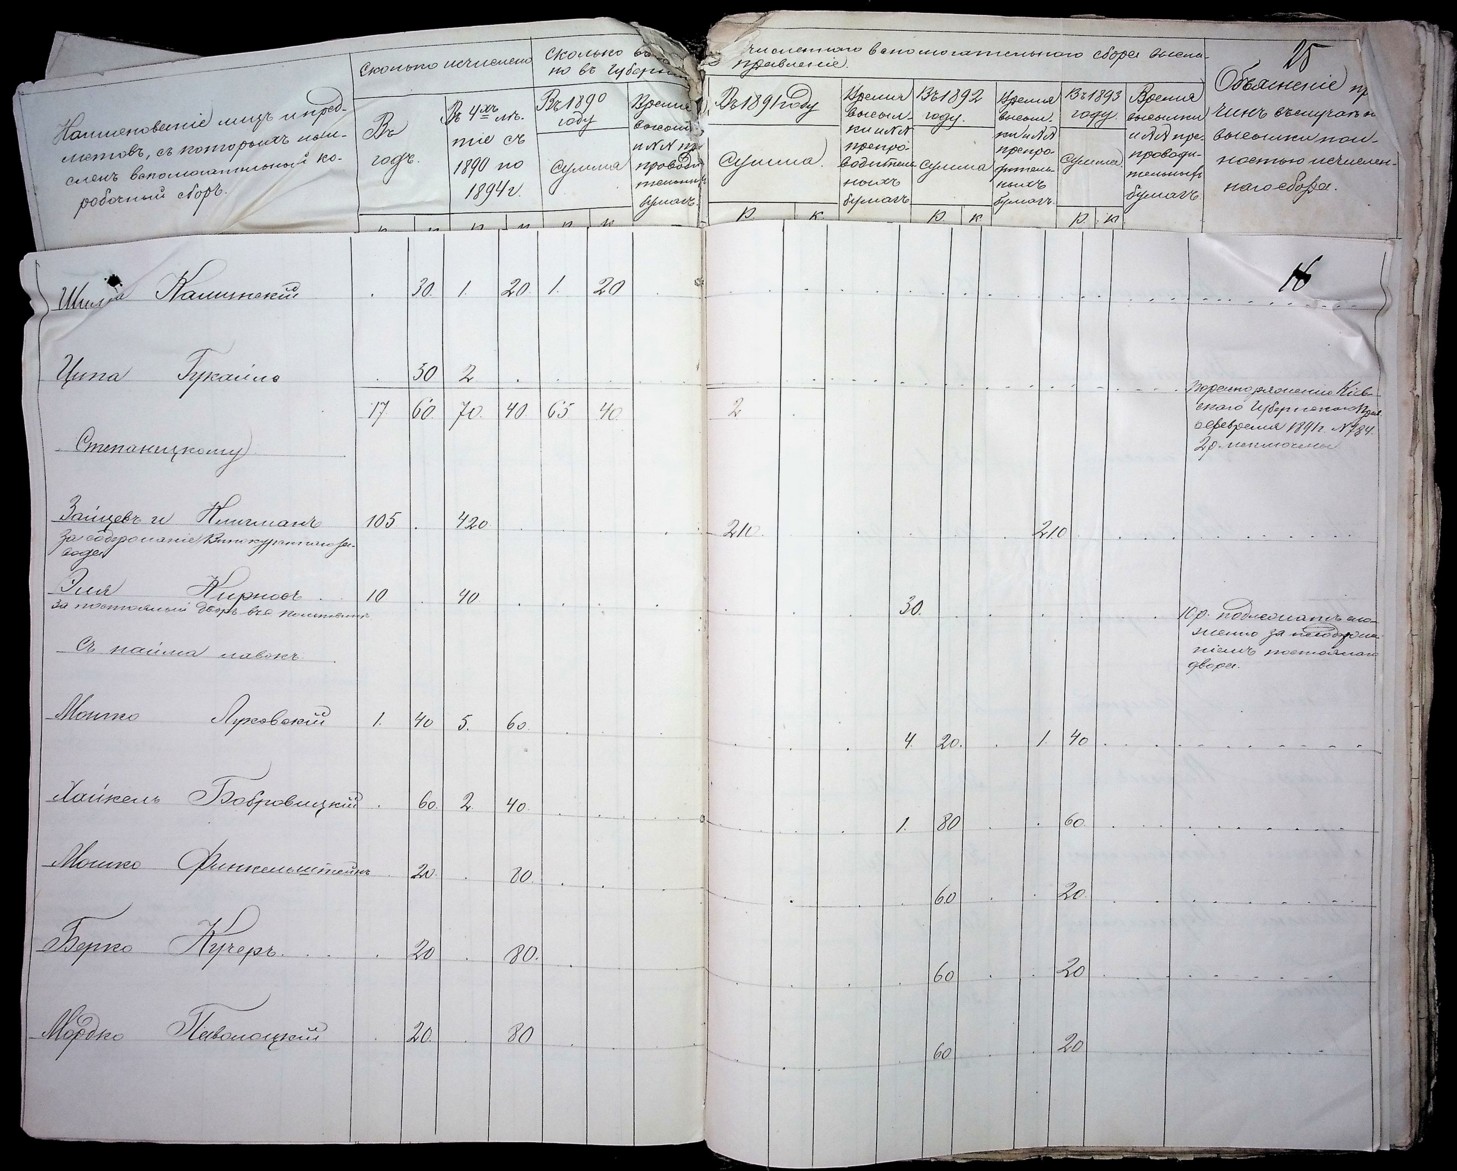 25
Наименованіе лицъ и пред-
метовъ, съ которыхъ исчи-
сленъ вспомогательный ко-
робочный сборъ.
Сколько исчислено
Въ
годъ.
Въ 4хъ лѣ-
тіе съ
1890 по
1894 г.
Сколько
но въ Губерн
Въ 1890
году
сумма
Время
высыл
и №№ пре
провод
тельных
бумагъ.
численнаго вспомогательнаго сбора высла-
правленіе.
Въ 1891 году
сумма.
Время
высыл-
ки и №№
препро-
водитель
ныхъ
бумагъ
Въ 1892
году.
сумма
Время
высыл-
ки и №№
препро-
дитель
ныхъ
бумагъ.
Въ 1893
году.
сумма
Время
высылки
и №№ пре-
проводи-
тельныхъ
бумагъ.
Объясненіе пр
чинъ
высылки пол-
ностью исчислен-
наго сбора.
р к р к р к
16
Калинскій . 30 1. 20 1. 20
Ципа Гукайло . 30 2
17 60 70 40 65 40 2
скаго Губернскаго
февраля 1891 г. № 784
2 р.
Степаницкому
Зайцевъ и 105 . 420 210 210
Эля Кирносъ 10 . 40 30
10 р. подлежатъ сло-
женію за
ніемъ постоялаго
двора.
Съ найма лавокъ
Мошко Луковскій 1. 40 5. 60 4. 20. 1 40
Хайкель Бобровицкій . 60 2 40 1. 80 60
Мошко Финкельштейнъ . 20 . 80 60 20
Берко Кучеръ . 20 . 80. 60 20
Мордко Паволоцкій . 20 . 80 60 20